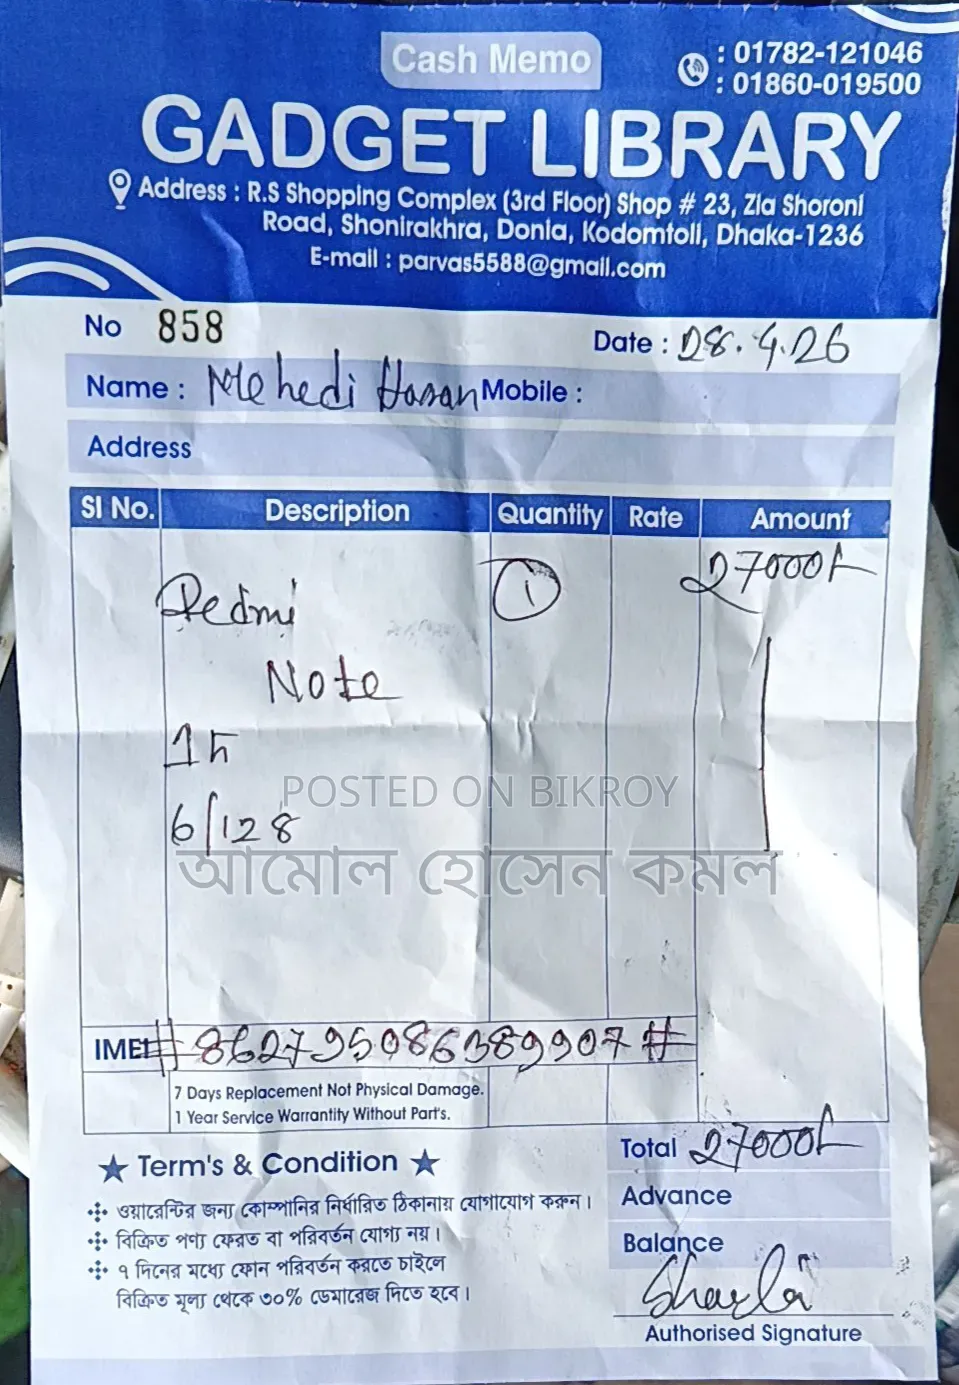 Cash Memo
: 01782-121046
: 01860-019500
GADGET LIBRARY
Address : R.S Shopping Complex (3rd Floor) Shop # 23, Zia Shoroni
Road, Shonirakhra, Donia, Kodomtoli, Dhaka-1236
E-mail : parvas5588@gmail.com
No 858
Date : 28.4.26
Name : Mehedi Hasan Mobile :
Address
Sl No. Description Quantity Rate Amount
Redmi 1 27000/-
Note
15
6/128
POSTED ON BIKROY
আমোল হোসেন কমল
IMEI # 862795086389907 #
7 Days Replacement Not Physical Damage.
1 Year Service Warrantity Without Part's.
Total 27000/-
Term's & Condition
Advance
ওয়ারেন্টির জন্য কোম্পানির নির্ধারিত ঠিকানায় যোগাযোগ করুন।
বিক্রিত পণ্য ফেরত বা পরিবর্তন যোগ্য নয়।
Balance
৭ দিনের মধ্যে ফোন পরিবর্তন করতে চাইলে
বিক্রিত মূল্য থেকে ৩০% ডেমারেজ দিতে হবে।
Authorised Signature